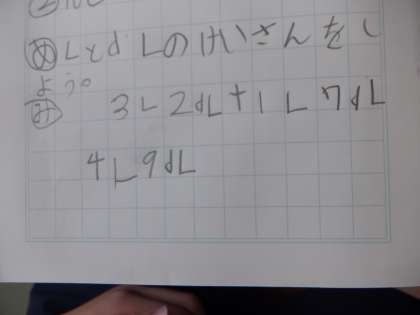 め LとdLのけいさんをし
よう。
み 3L2dL+1L7dL
4L9dL